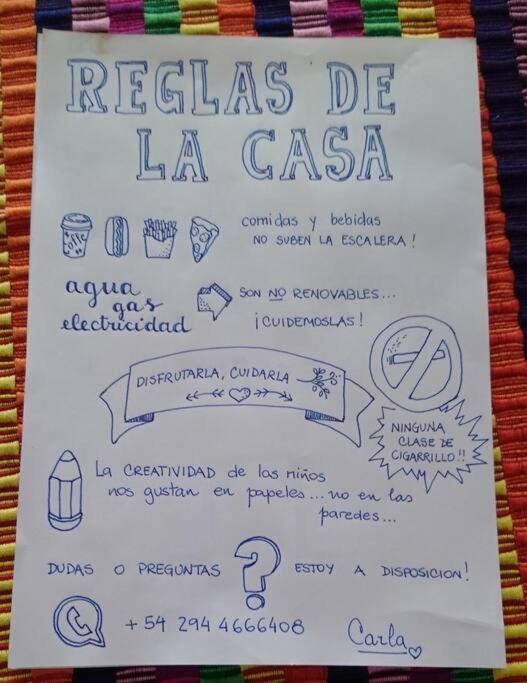 REGLAS DE
LA CASA
comidas y bebidas
NO SUBEN LA ESCALERA!
agua
gas
electricidad
SON NO RENOVABLES...
¡CUIDEMOSLAS!
DISFRUTARLA, CUIDARLA
NINGUNA
CLASE DE
CIGARRILLO!!
LA CREATIVIDAD de los niños
nos gustan en papeles... no en las
paredes...
DUDAS O PREGUNTAS ? ESTOY A DISPOSICION!
+54 294 4666408
Carla